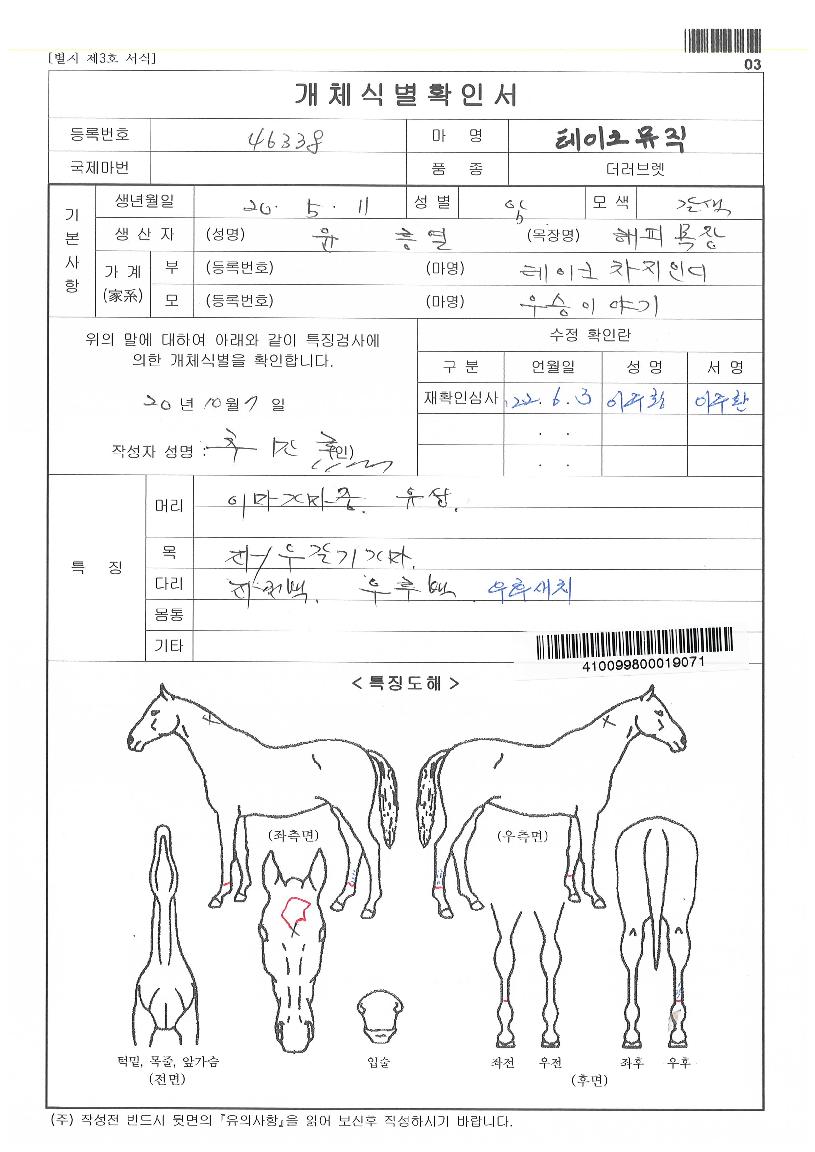 [별지 제3호 서식]
03
개체식별확인서
등록번호 46338 마 명 테이크뮤직
국제마번 품 종 더러브렛
기본사항
생년월일 20. 5. 11 성별 암 모색 갈색
생 산 자 (성명) 윤 흥열 (목장명) 해피목장
가 계 (家系) 부 (등록번호) (마명) 테이크차지인디
모 (등록번호) (마명) 우승이야기
위의 말에 대하여 아래와 같이 특징검사에
의한 개체식별을 확인합니다.
20 년 10월 7 일
작성자 성명 : (인)
수정 확인란
구 분 언월일 성 명 서 명
재확인심사 '22. 6. 3
. .
. .
특 징
머리 이마가마중. 유성.
목 좌/우갈기가마.
다리 우후백 우후새치
몸통
기타
410099800019071
< 특징도해 >
(좌측면) (우측면)
턱밑, 목줄, 앞가슴 입술 좌전 우전 좌후 우후
(전면) (후면)
(주) 작성전 반드시 뒷면의 『유의사항』을 읽어 보신후 작성하시기 바랍니다.